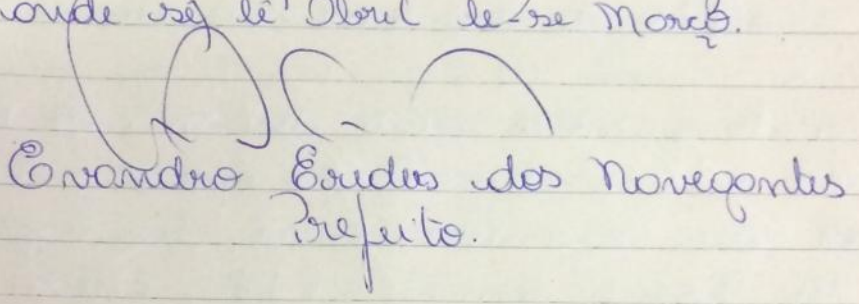 onde se lê Abril le-se Março.
Evandro Erudes dos Navegantes
Prefeito.